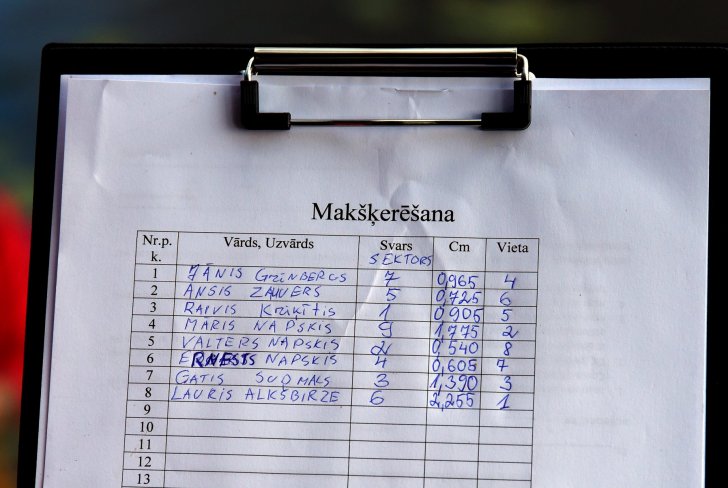 Makšķerēšana
Nr.p.k. Vārds, Uzvārds Svars SEKTORS Cm Vieta
1 JĀNIS GrīNBERGS 7 0,965 4
2 ANSIS ZAĻUVERS 5 0,725 6
3 RAIVIS KrūKĪTIS 1 0,905 5
4 MARIS NAPSKIS 9 1,775 2
5 VALTERS NAPSKIS 2 0,540 8
6 ERNESTS NAPSKIS 4 0,605 7
7 GATIS SUDMALS 3 1,390 3
8 LAURIS ALKŠBIRZE 6 2,255 1
9
10
11
12
13